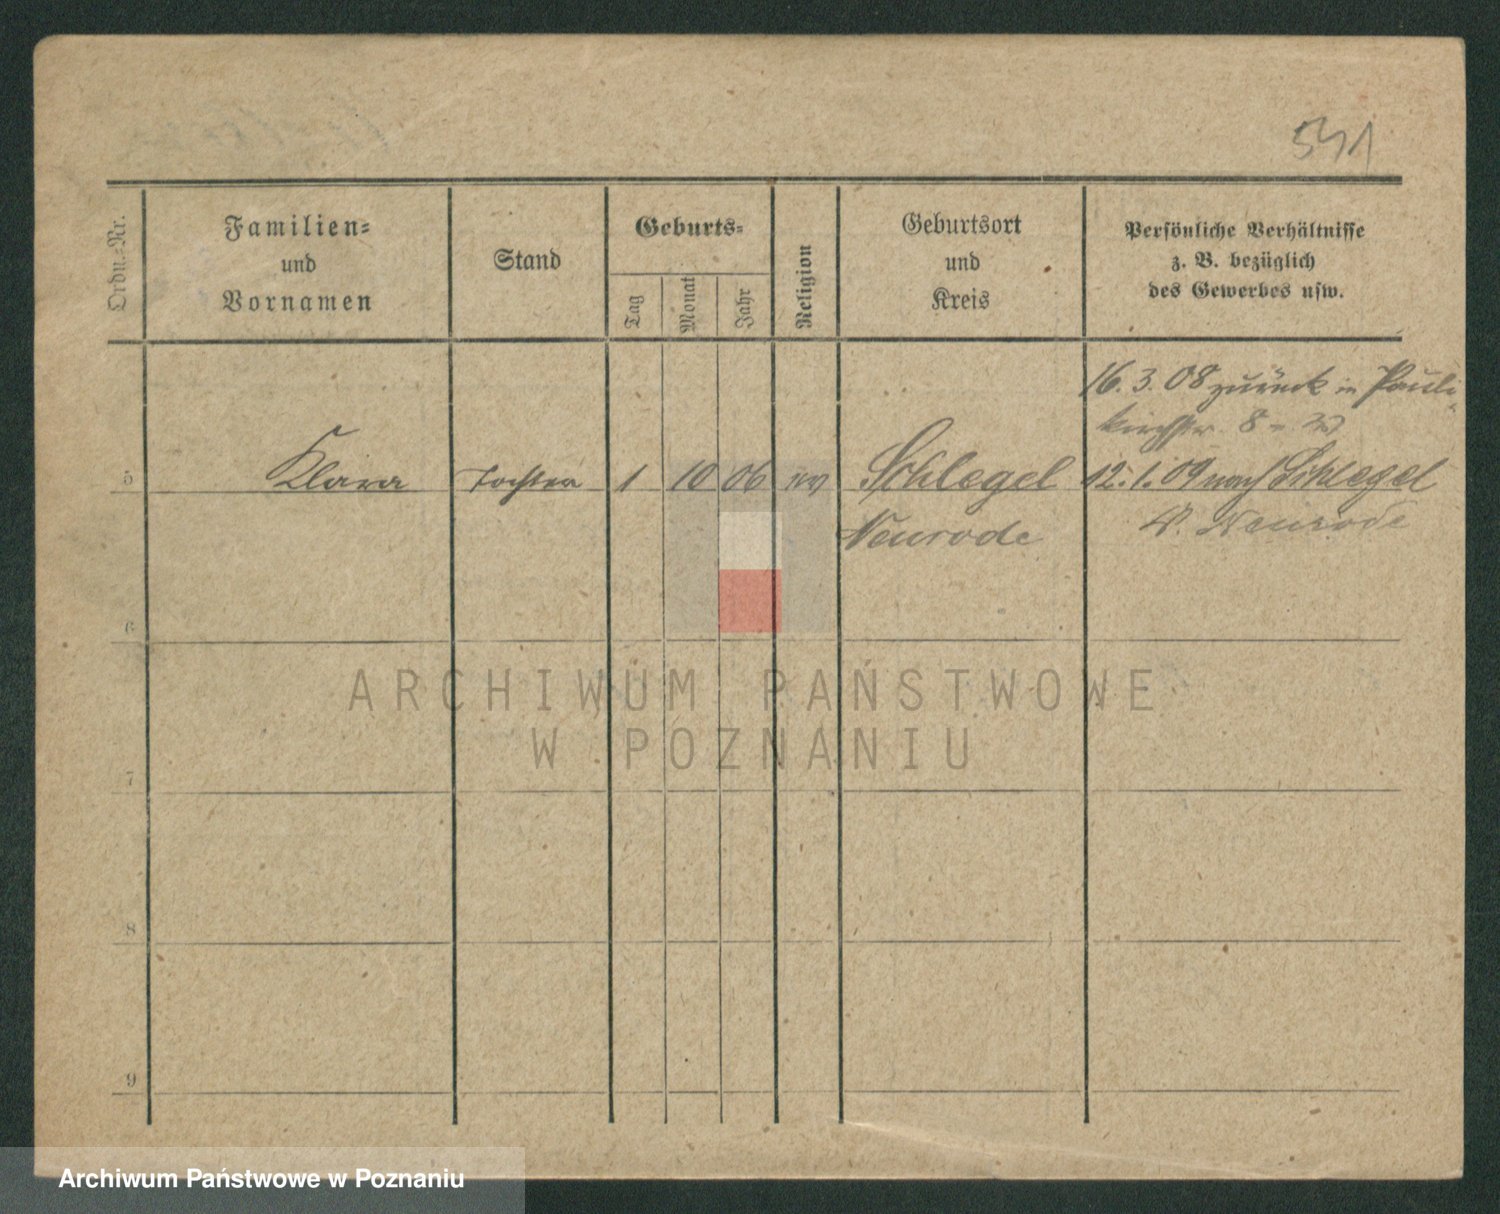 541
Ordn.-Nr.
Familien-
und
Vornamen
Stand
Geburts-
Tag
Monat
Jahr
Religion
Geburtsort
und
Kreis
Persönliche Verhältnisse
z. B. bezüglich
des Gewerbes usw.
16. 3. 08 zurück in Pauli-
kirchstr. 8
5 Klara Tochter 1 10 06 ev Schlegel 12. 1. 09 nach Schlegel
Neurode Neurode
6
ARCHIWUM PAŃSTWOWE
W POZNANIU
7
8
9
Archiwum Państwowe w Poznaniu